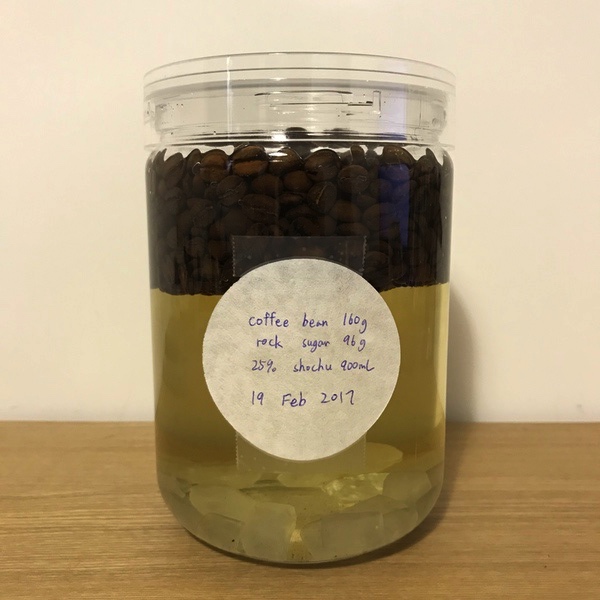 coffee bean 160g
rock sugar 96g
25% shochu 900mL
19 Feb 2017